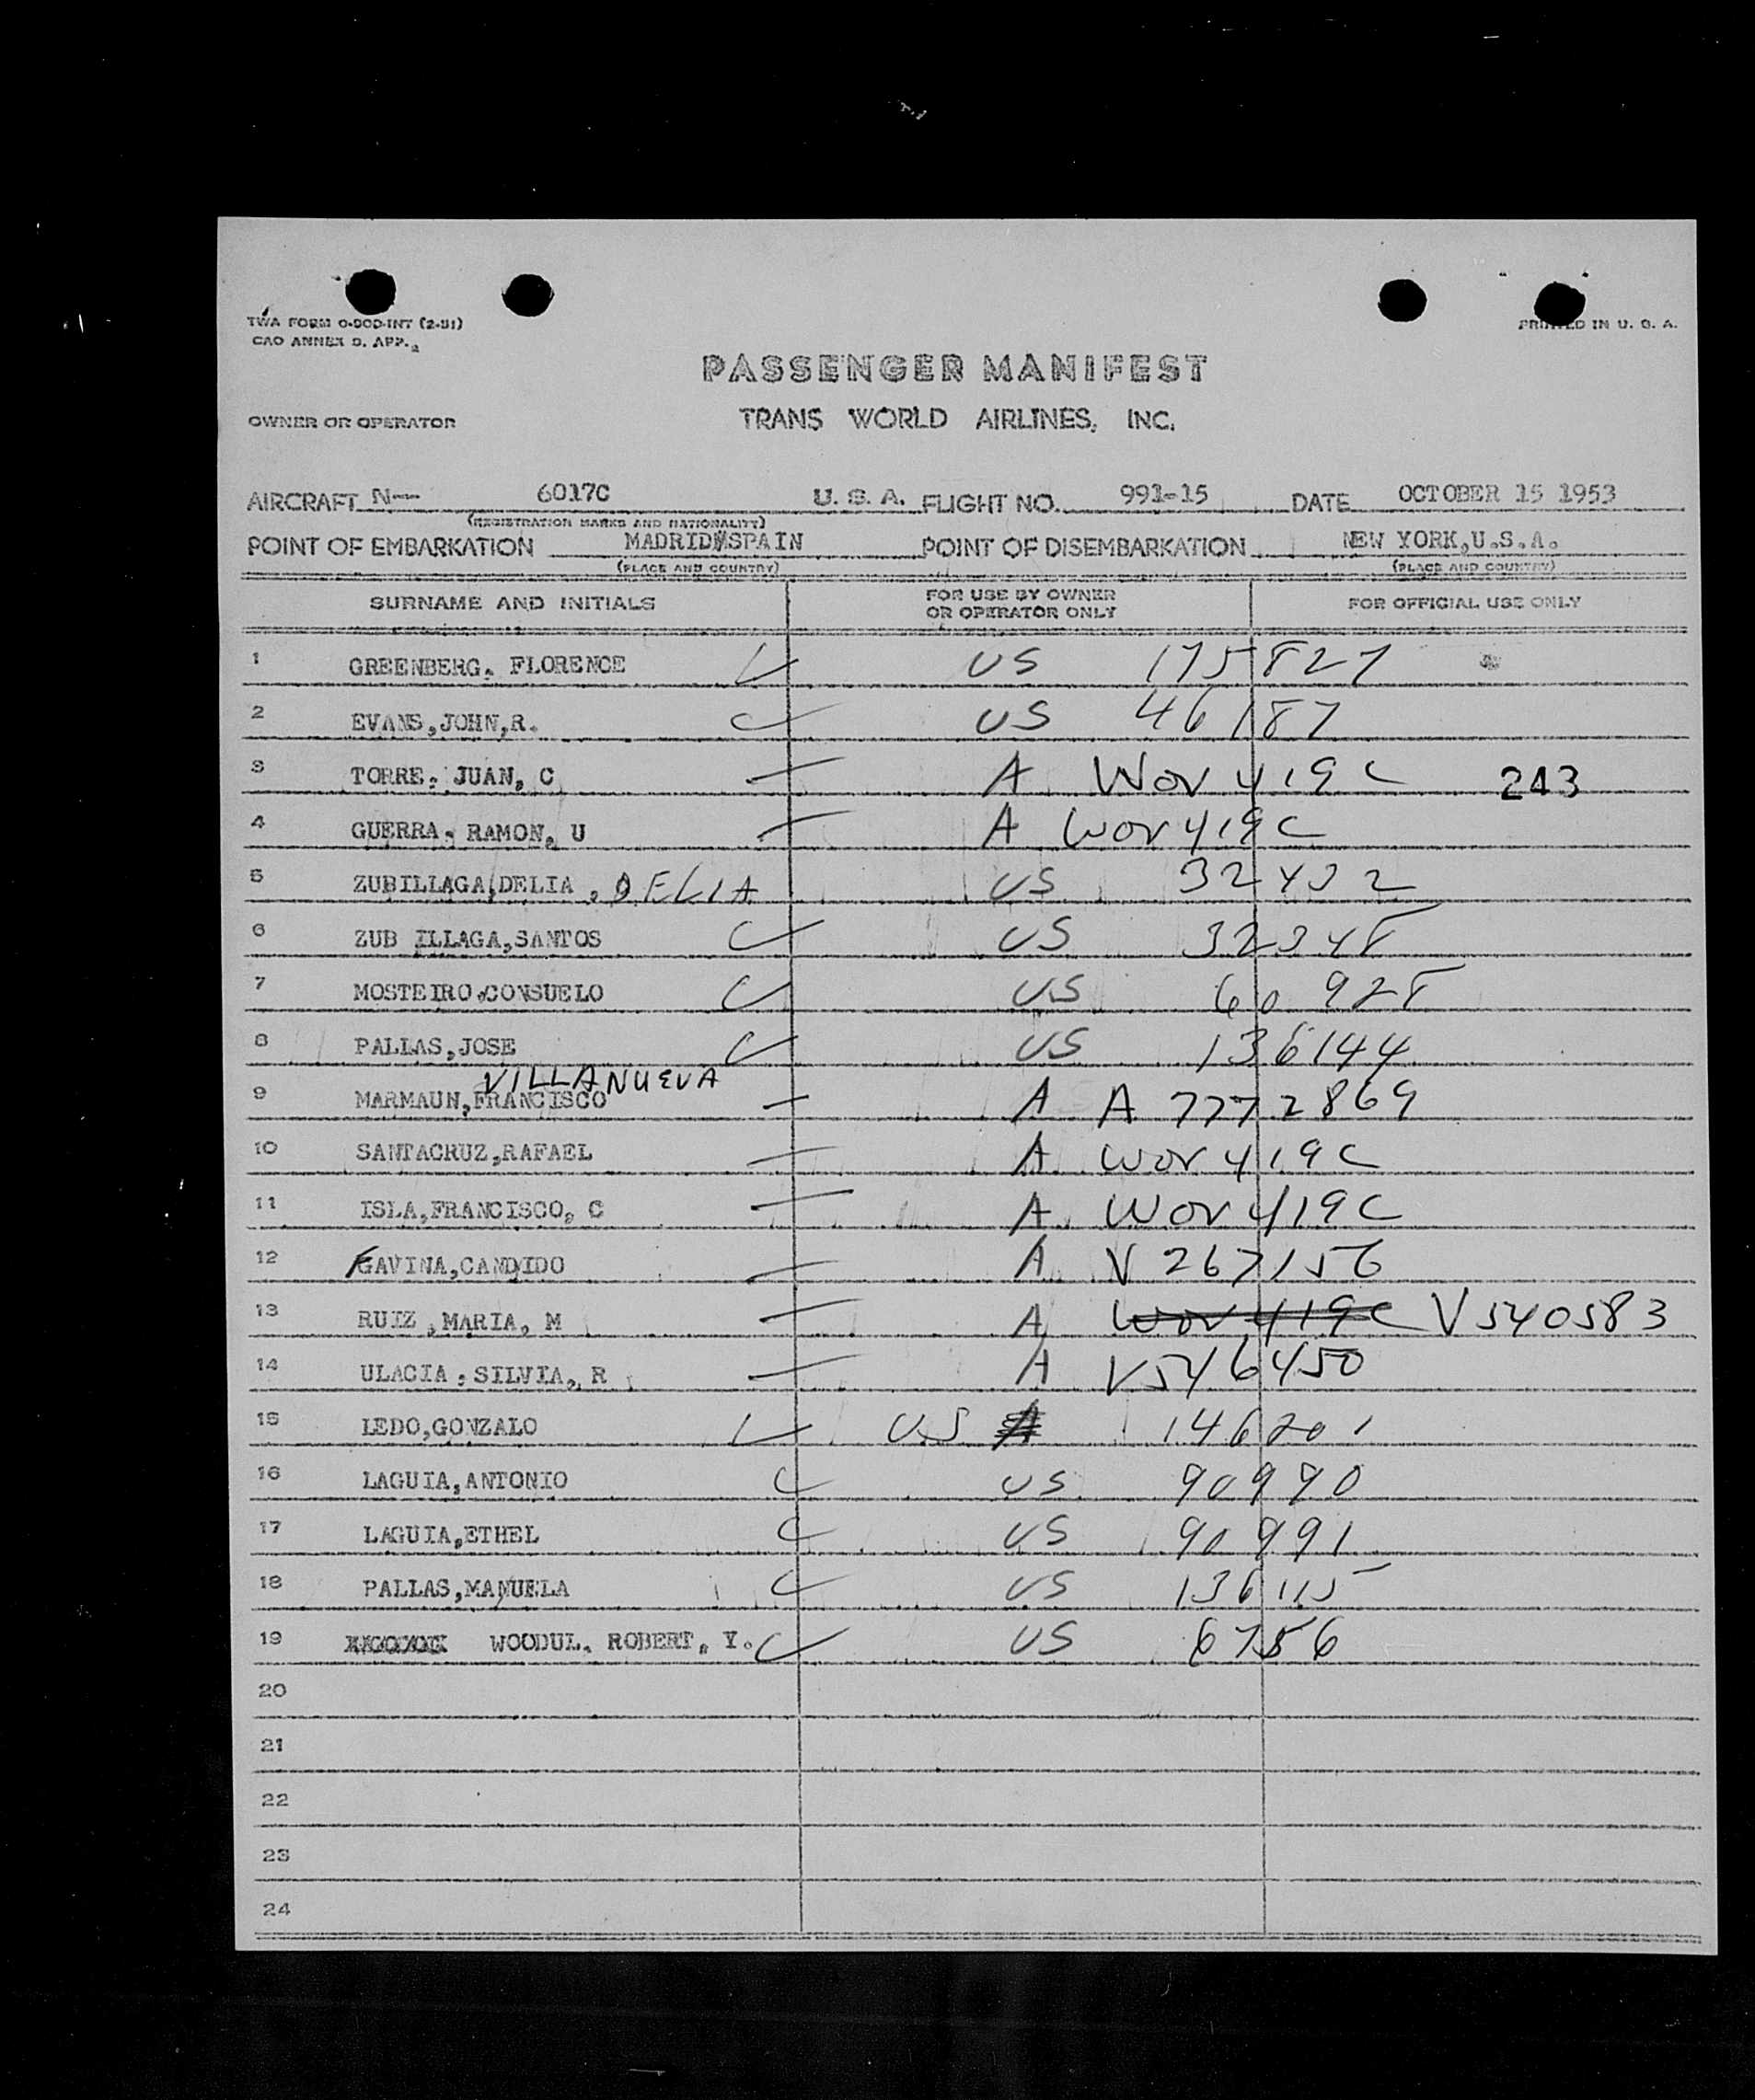 TWA FORM O-90D-INT (2-51)
PRINTED IN U. S. A.
CAO ANNEX 9. APP. 2
PASSENGER MANIFEST
OWNER OR OPERATOR TRANS WORLD AIRLINES, INC.
AIRCRAFT N— 6017C U. S. A. FLIGHT NO. 991-15 DATE OCTOBER 15 1953
(REGISTRATION MARKS AND NATIONALITY)
POINT OF EMBARKATION MADRID/SPAIN POINT OF DISEMBARKATION NEW YORK,U.S.A.
(PLACE AND COUNTRY) (PLACE AND COUNTRY)
SURNAME AND INITIALS FOR USE BY OWNER OR OPERATOR ONLY FOR OFFICIAL USE ONLY
1 GREENBERG. FLORENCE US 175827
2 EVANS,JOHN,R. US 46187
3 TORRE. JUAN, C A WOV 419C 243
4 GUERRA. RAMON, U A WOV 419C
5 ZUBILLAGA,DELIA , DELIA US 32432
6 ZUB ILLAGA,SANTOS US 32348
7 MOSTEIRO.CONSUELO US 60928
8 PALLAS,JOSE US 136144
VILLANUEVA
9 MARMAUN,FRANCISCO A A 7772869
10 SANTACRUZ,RAFAEL A WOV 419C
11 ISLA,FRANCISCO, C A WOV 419C
12 GAVINA,CANDIDO A V 267156
13 RUIZ ,MARIA, M A WOV 419C V540583
14 ULACIA , SILVIA, R A V546450
15 LEDO,GONZALO US A 146201
16 LAGUIA,ANTONIO US 90990
17 LAGUIA,ETHEL US 90991
18 PALLAS,MANUELA US 136115
19 WOODUL. ROBERT, Y. US 6756
20
21
22
23
24